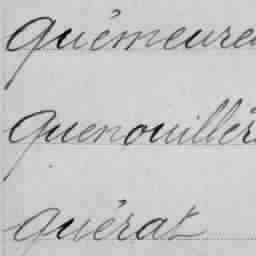 Quémeure
Quenouillèr
Quérat